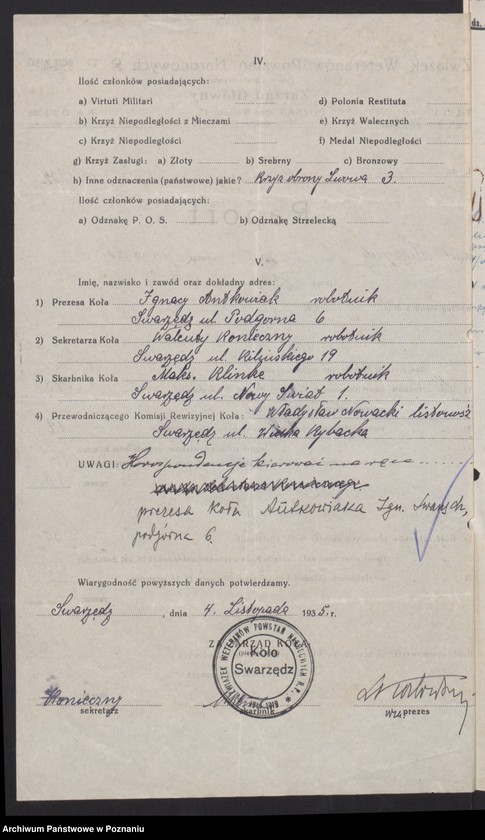 IV.
Ilość członków posiadających:
a) Virtuti Militari d) Polonia Restituta
b) Krzyż Niepodległości z Mieczami e) Krzyż Walecznych
c) Krzyż Niepodległości f) Medal Niepodległości
g) Krzyż Zasługi: a) Złoty b) Srebrny c) Bronzowy
h) Inne odznaczenia (państwowe) jakie? Krzyż obrony Lwowa 3.
Ilość członków posiadających:
a) Odznakę P. O. S. b) Odznakę Strzelecką
V.
Imię, nazwisko i zawód oraz dokładny adres:
1) Prezesa Koła Ignacy Antkowiak robotnik
Swarzędz ul. Podgorna 6
2) Sekretarza Koła Walenty Konieczny robotnik
Swarzędz ul. Kilzuskiego 19
3) Skarbnika Koła Maks. Klinke robotnik
Swarzędz ul. Nowy Świat 1.
4) Przewodniczącego Komisji Rewizyjnej Koła: Władysław Nowacki listonosz
Swarzędz ul. Rybacka
UWAGI: Korespondencje kierować na ręce
prezesa Koła Antkowiaka Ign. Swarzędz,
podgórna 6.
Wiarygodność powyższych danych potwierdzamy.
Swarzędz, dnia 4. Listopada 1935. r.
ZA ZARZĄD KOŁA
ZWIĄZEK WETERANÓW POWSTAŃ NARODOWYCH R. P.
Koło
Swarzędz
Konieczny
sekretarz skarbnik prezes
Archiwum Państwowe w Poznaniu